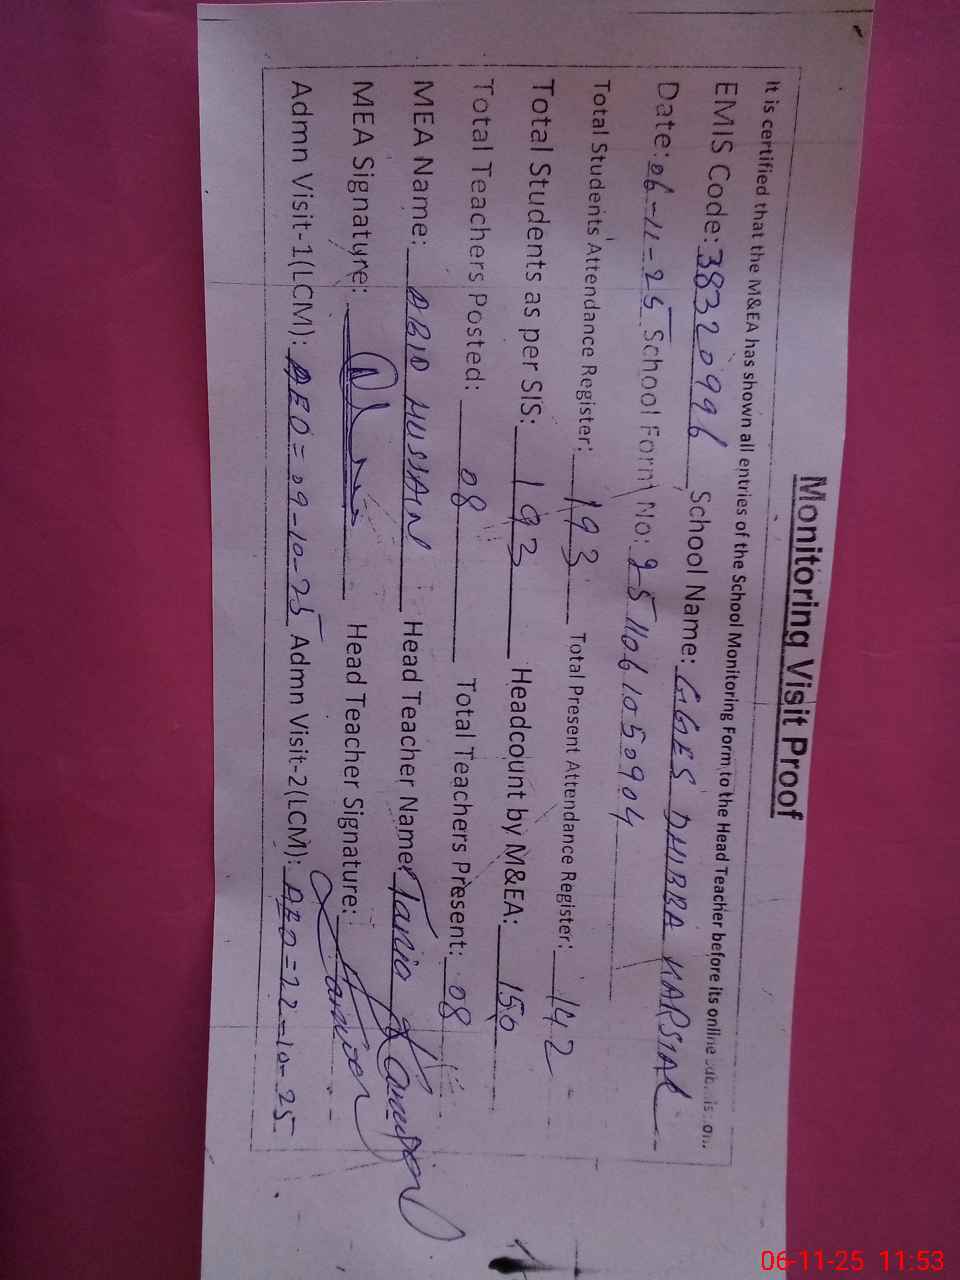 Monitoring Visit Proof
It is certified that the M&EA has shown all entries of the School Monitoring Form to the Head Teacher before its online
EMIS Code: 38320996 School Name: GGES DHIBBA KARSIAL
Date: 06-11-25 School Form No: 2511061050904
Total Students Attendance Register: 193 Total Present Attendance Register: 142
Total Students as per SIS: 193 Headcount by M&EA: 150
Total Teachers Posted: 08 Total Teachers Present: 08
MEA Name: ABID HUSSAIN Head Teacher Name: Tania
MEA Signature: Head Teacher Signature:
Admn Visit-1(LCM): AEO = 09-10-25 Admn Visit-2(LCM): AEO = 22-10-25
06-11-25 11:53